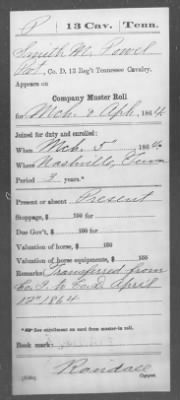 P | 13 Cav. | Tenn.
Smith M. Powel
Pvt, Co. D, 13 Reg't Tennessee Cavalry.
Appears on
Company Muster Roll
for Mch. & Aph, 1864
Joined for duty and enrolled:
When Mch. 5", 1864
Where Nashville, Tenn
Period 3 years.*
Present or absent Present
Stoppage, $ 100 for
Due Gov't, $ 100 for
Valuation of horse, $ 100
Valuation of horse equipments, $ 100
Remarks: Transferred from
Co. to Co. D April
17" 1864
*See enrollment on card from muster-in roll.
Book mark:
Randall
Copyist.